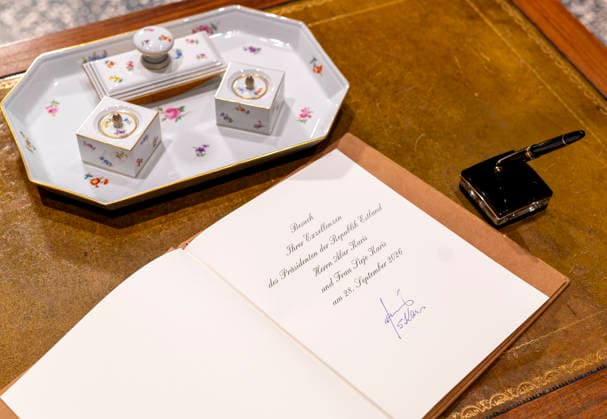 Besuch
Ihrer Exzellenzen
des Präsidenten der Republik Estland
Herrn Alar Karis
und Frau Sirje Karis
am 28. September 2026